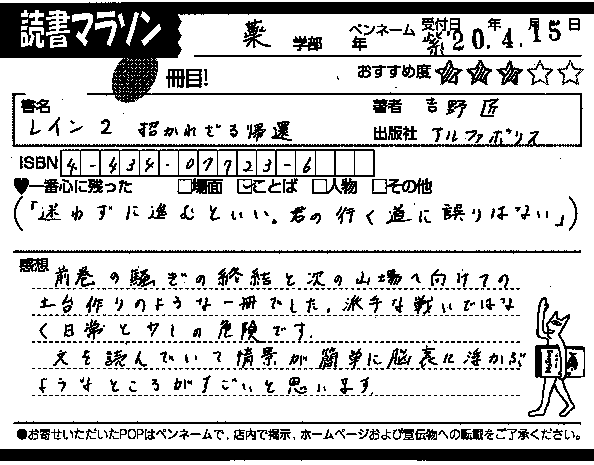 読書マラソン
薬 学部 年 ペンネーム 紫 受付日 '20.年4.月15日
冊目!
おすすめ度 ★★★☆☆
書名 レイン2 招かれざる帰還
著者 吉野 匠
出版社 アルファポリス
ISBN 4-434-07723-6
♥一番心に残った □場面 ☑ことば □人物 □その他
(「迷わずに進むといい。君の行く道に誤りはない」)
感想
前巻の騒ぎの終結と次の山場へ向けての
土台作りのような一冊でした。派手な戦いではな
く日常と少しの危険です。
文を読んでいて情景が簡単に脳裏に浮かぶ
ようなところがすごいと思います。
●お寄せいただいたPOPはペンネームで、店内で掲示、ホームページおよび宣伝物への転載をご了承ください。